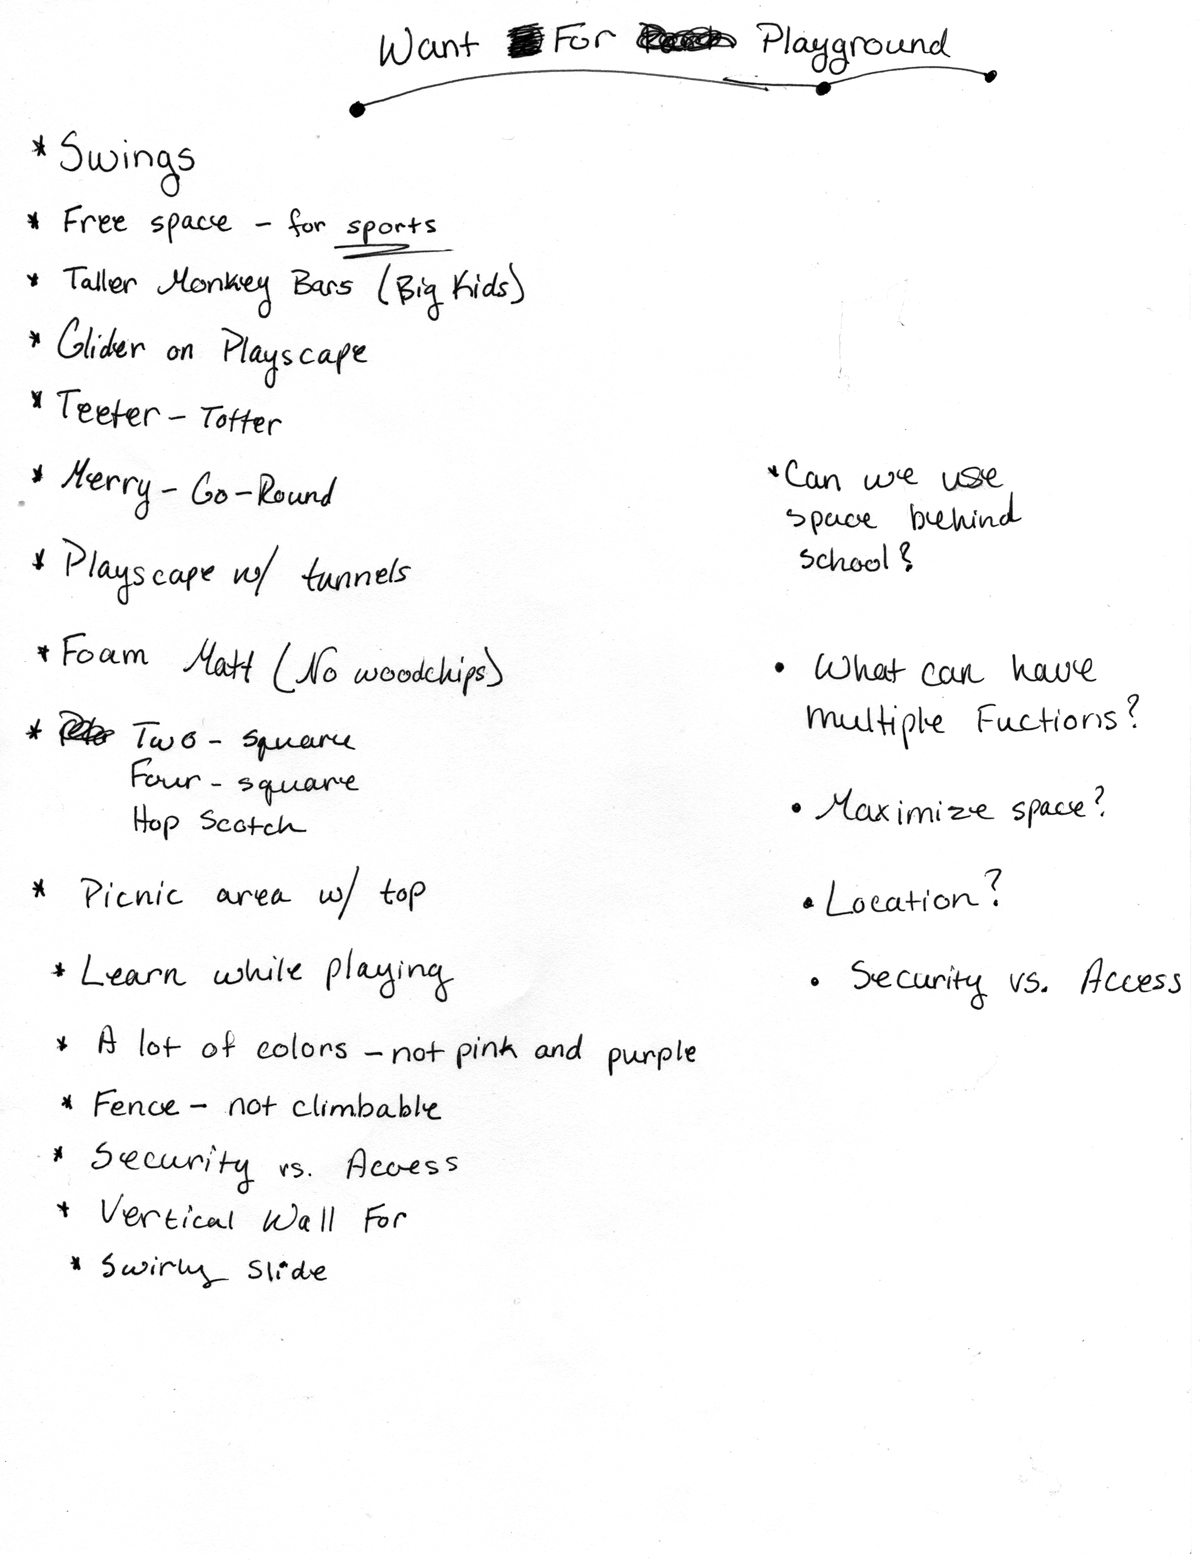 Want For Playground
* Swings
* Free space - for sports
* Taller Monkey Bars (Big Kids)
* Glider on Playscape
* Teeter - Totter
* Merry - Go - Round
* Playscape w/ tunnels
* Foam Matt (No woodchips)
* Two - square
Four - square
Hop Scotch
* Picnic area w/ top
* Learn while playing
* A lot of colors - not pink and purple
* Fence - not climbable
* Security vs. Access
* Vertical Wall For
* Swirly Slide
* Can we use
space behind
school?
• What can have
multiple Fuctions?
• Maximize space?
• Location?
• Security vs. Access